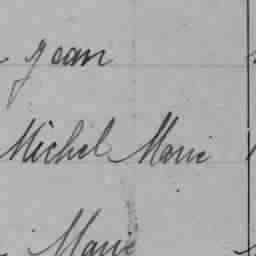 Jean
Michel Marie
Marie